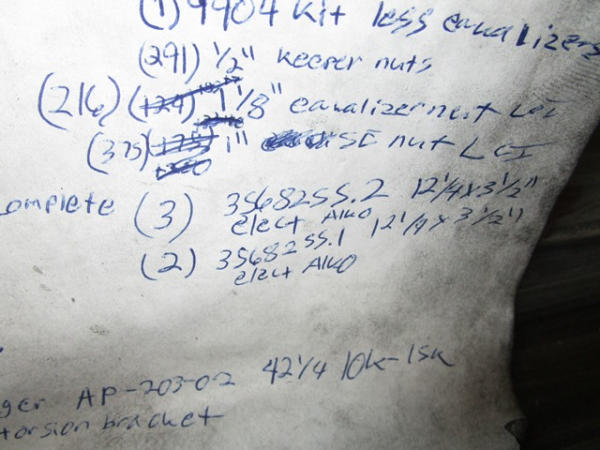 (1) 9904 Kit less equalizers
(291) 1/2" keeper nuts
(216) 1 1/8" equalizer nut LCI
(375) 1" SE nut LCI
omplete (3) 3568255.2 12 1/4 x 3 1/2"
elect Alko
(2) 3568255.1 12 1/4 x 3 1/2"
elect Alko
ger AP-203-02 42 1/4 10k-15k
torsion bracket